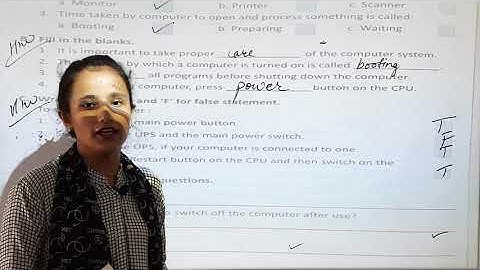 a. Monitor b. Printer c. Scanner
3. Time taken by computer to open and process something is called
a. Booting b. Preparing c. Waiting
H.W Fill in the blanks.
1. It is important to take proper care of the computer system.
2. The by which a computer is turned on is called booting
3. all programs before shutting down the computer.
4. computer, press power button on the CPU.
H.W and 'F' for false statement.
main power button. T
UPS and the main power switch. F
UPS, if your computer is connected to one.
restart button on the CPU and then switch on the T
questions.
switch off the computer after use?